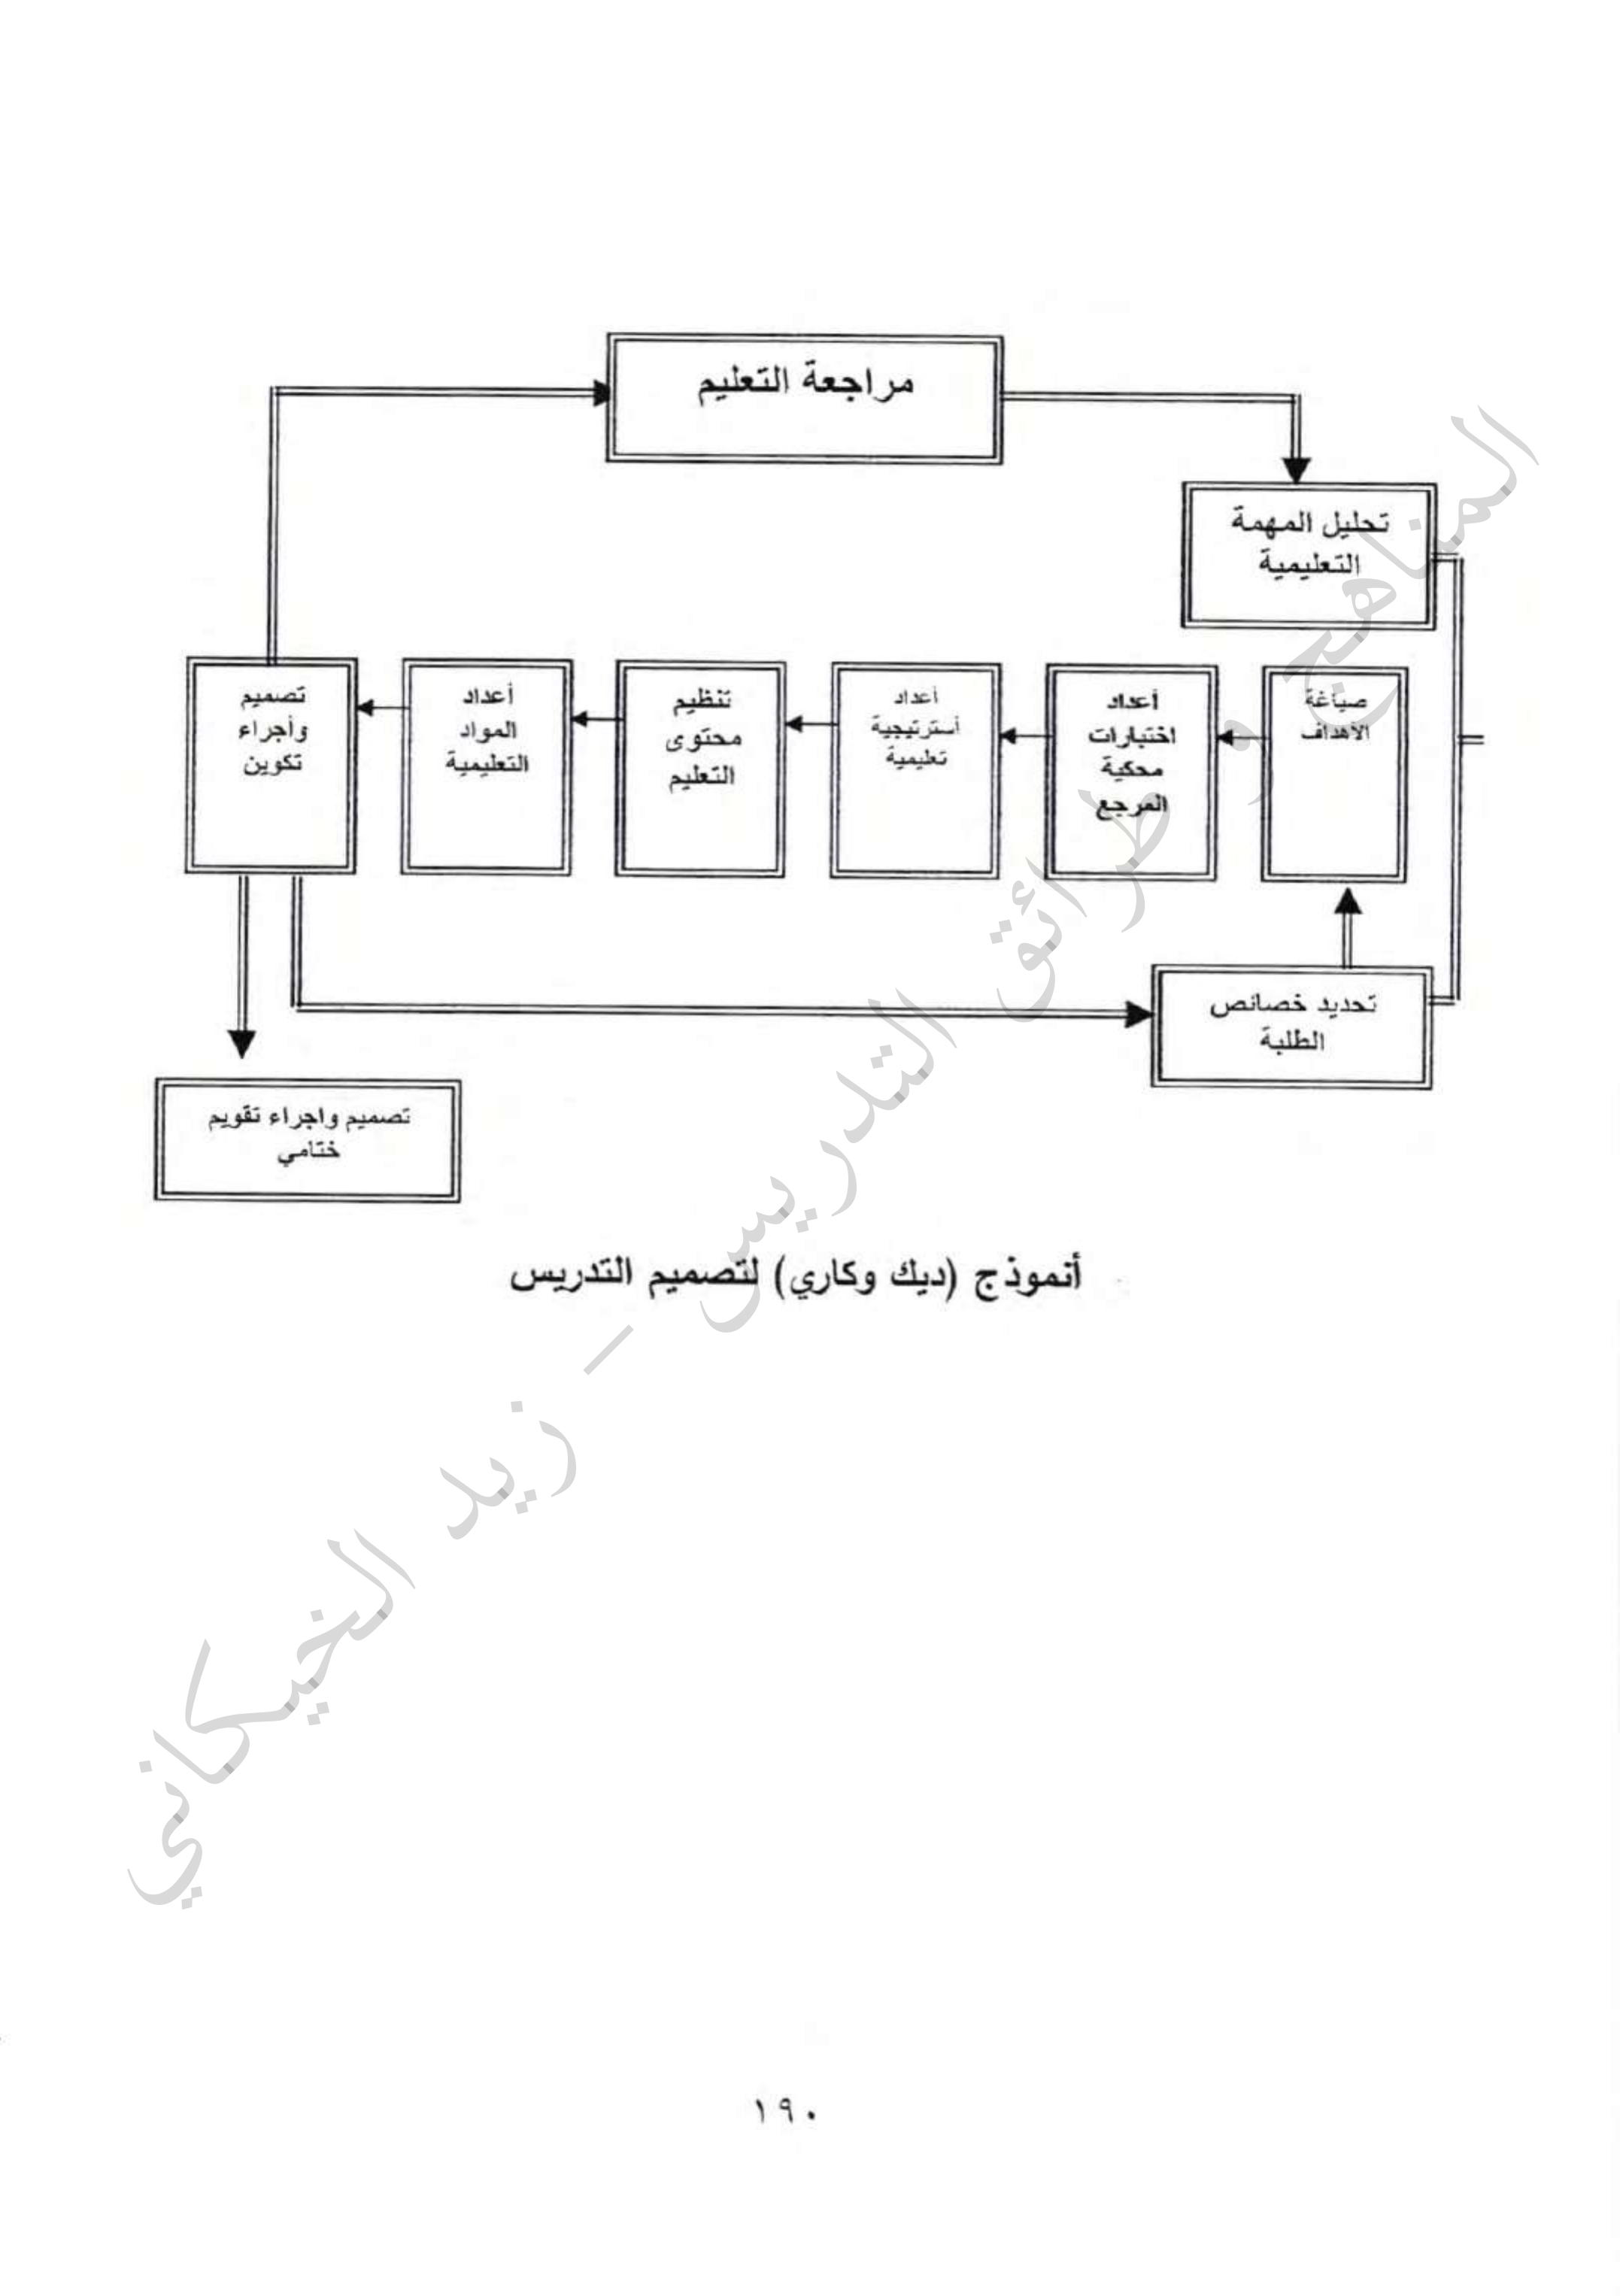 مراجعة التعليم
تحليل المهمة
التعليمية
صياغة
الأهداف
أعداد
اختبارات
محكية
المرجع
أعداد
أسترتيجية
تعليمية
تنظيم
محتوى
التعليم
أعداد
المواد
التعليمية
تصميم
وأجراء
تكوين
تحديد خصائص
الطلبة
تصميم واجراء تقويم
ختامي
أنموذج (ديك وكاري) لتصميم التدريس
المناهج و طرائق التدريس – زيد الخيكاني
١٩٠